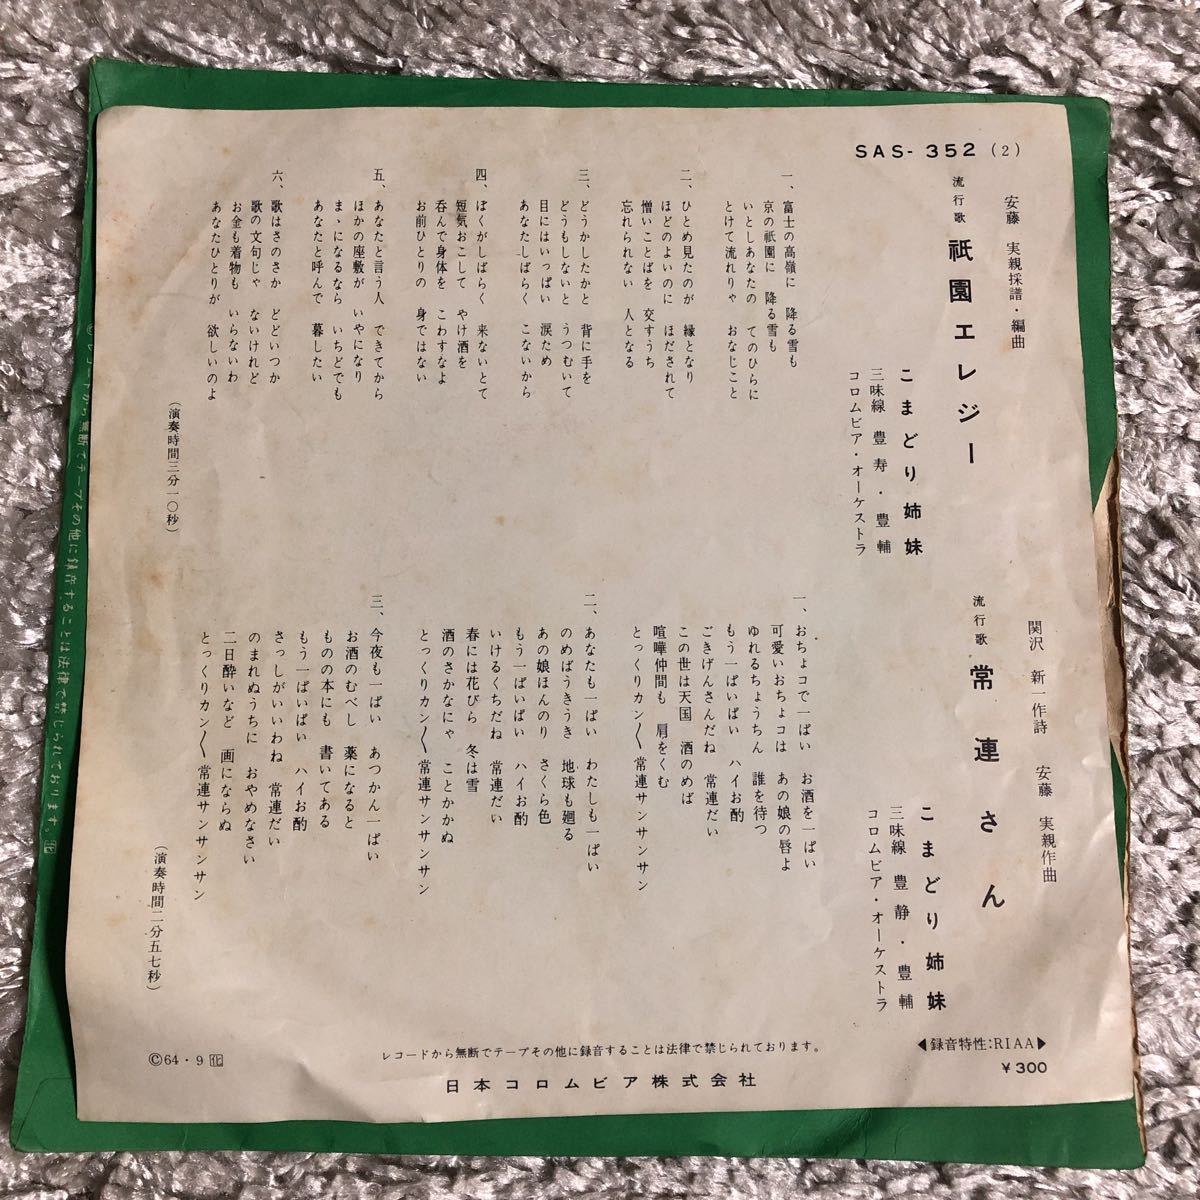 SAS-352 (2)
安藤 実親採譜・編曲
流行歌 祇園エレジー
こまどり姉妹
三味線 豊寿・豊輔
コロムビア・オーケストラ
一、富士の高嶺に 降る雪も
京の祇園に 降る雪も
いとしあなたの てのひらに
とけて流れりゃ おなじこと
二、ひとめ見たのが 縁となり
ほどのよいのに ほだされて
憎いことばを 交すうち
忘れられない 人となる
三、どうかしたかと 背に手を
どうもしないと うつむいて
目にはいっぱい 涙ため
あなたしばらく こないから
四、ぼくがしばらく 来ないとて
短気おこして やけ酒を
呑んで身体を こわすなよ
お前ひとりの 身ではない
五、あなたと言う人 できてから
ほかの座敷が いやになり
まゝになるなら いちどでも
あなたと呼んで 暮したい
六、歌はさのさか どどいつか
歌の文句じゃ ないけれど
お金も着物も いらないわ
あなたひとりが 欲しいのよ
(演奏時間三分一〇秒)
関沢 新一作詩 安藤 実親作曲
流行歌 常連さん
こまどり姉妹
三味線 豊静・豊輔
コロムビア・オーケストラ
一、おちょコで一ぱい お酒を一ぱい
可愛いおちょコは あの娘の唇よ
ゆれるちょうちん 誰を待つ
もう一ぱいぱい ハイお酌
ごきげんさんだね 常連だい
この世は天国 酒のめば
喧嘩仲間も 肩をくむ
とっくりカン〳〵常連サンサンサン
二、あなたも一ぱい わたしも一ぱい
のめばうきうき 地球も廻る
あの娘ほんのり さくら色
もう一ぱいぱい ハイお酌
いけるくちだね 常連だい
春には花びら 冬は雪
酒のさかなにゃ ことかかぬ
とっくりカン〳〵常連サンサンサン
三、今夜も一ぱい あつかん一ぱい
お酒のむべし 薬になると
ものの本にも 書いてある
もう一ぱいぱい ハイお酌
さっしがいいわね 常連だい
のまれぬうちに おやめなさい
二日酔いなど 画にならぬ
とっくりカン〳〵常連サンサンサン
(演奏時間二分五七秒)
◀録音特性:RIAA▶
¥300
レコードから無断でテープその他に録音することは法律で禁じられております。
日本コロムビア株式会社
©64・9 化
©レコードから無断でテープその他に録音することは法律で禁じられております。化